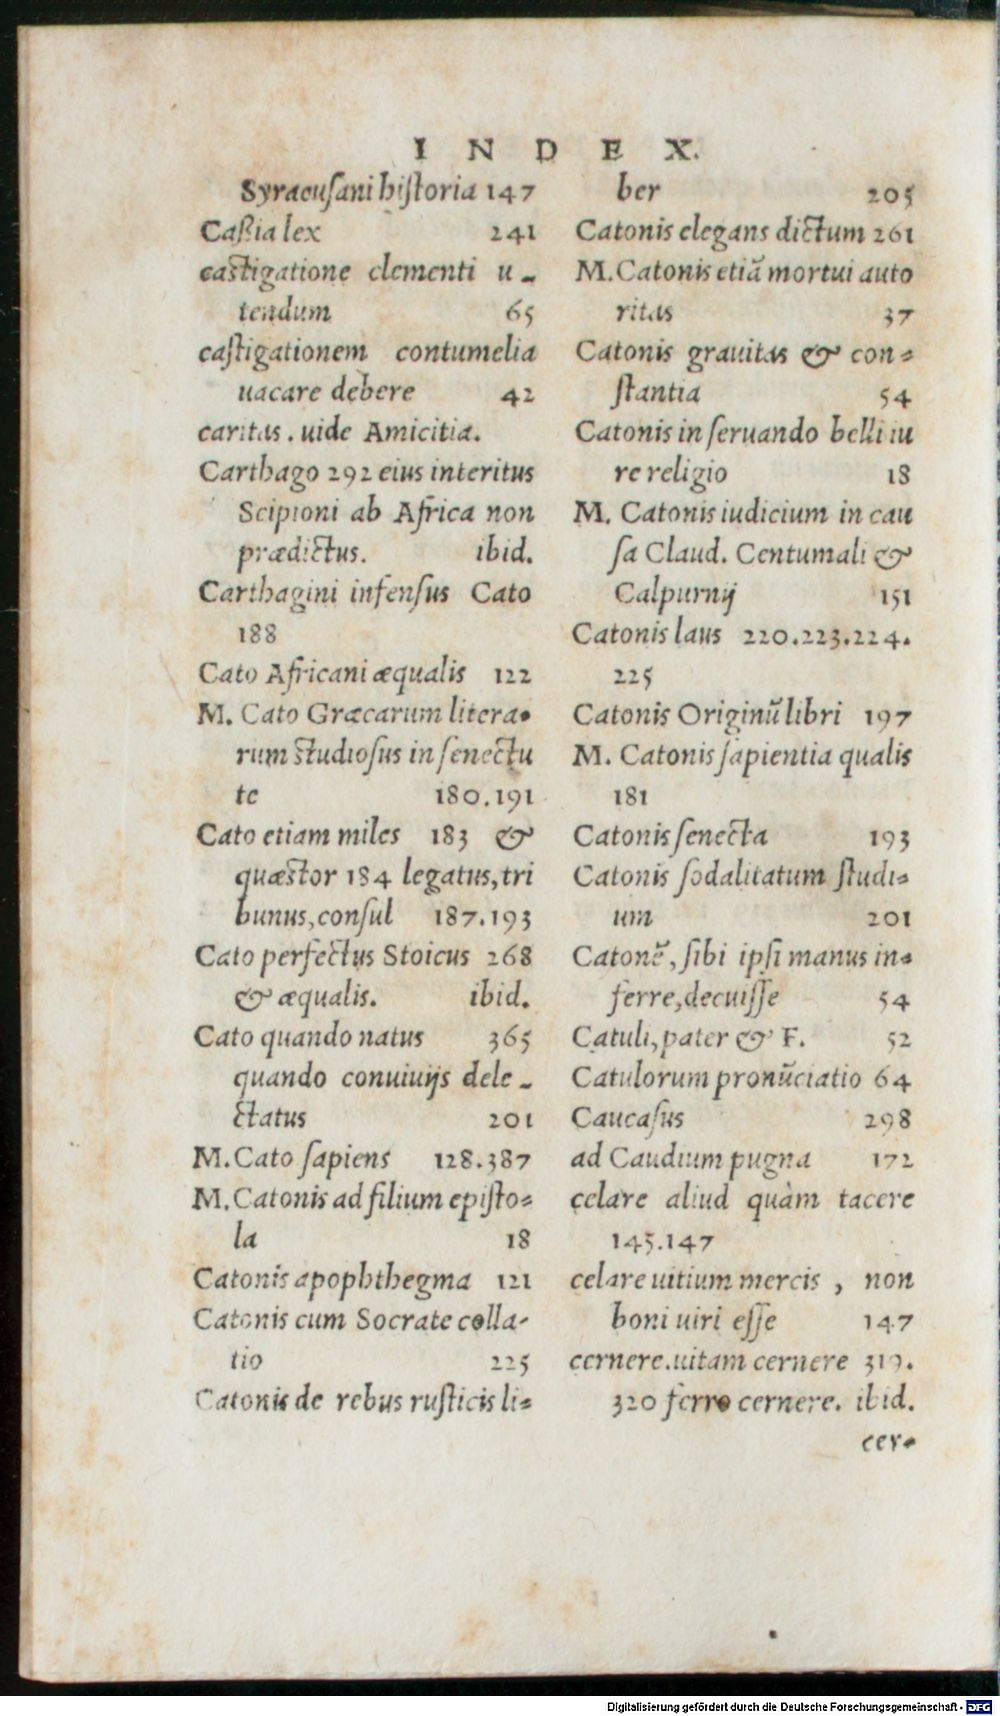 INDEX.
Syracuſani hiſtoria 147
Caßia lex 241
caſtigatione clementi u-
tendum 65
caſtigationem contumelia
uacare debere 42
caritas. uide Amicitia.
Carthago 292 eius interitus
Scipioni ab Africa non
prædictus. ibid.
Carthagini infenſus Cato
188
Cato Africani æqualis 122
M. Cato Græcarum litera-
rum ſtudioſus in ſenectu
te 180.191
Cato etiam miles 183 &
quæſtor 184 legatus, tri
bunus, conſul 187.193
Cato perfectus Stoicus 268
& æqualis. ibid.
Cato quando natus 365
quando conuiuijs dele-
ctatus 201
M. Cato ſapiens 128.387
M. Catonis ad filium epiſto-
la 18
Catonis apophthegma 121
Catonis cum Socrate colla-
tio 225
Catonis de rebus ruſticis li-
ber 205
Catonis elegans dictum 261
M. Catonis etiã mortui auto
ritas 37
Catonis grauitas & con-
ſtantia 54
Catonis in ſeruando belli iu
re religio 18
M. Catonis iudicium in cau
ſa Claud. Centumali &
Calpurnij 151
Catonis laus 220.223.224.
225
Catonis Originũ libri 197
M. Catonis ſapientia qualis
181
Catonis ſenecta 193
Catonis ſodalitatum ſtudi-
um 201
Catonẽ, ſibi ipſi manus in-
ferre, decuiſſe 54
Catuli, pater & F. 52
Catulorum pronũciatio 64
Caucaſus 298
ad Caudium pugna 172
celare aliud quàm tacere
145.147
celare uitium mercis, non
boni uiri eſſe 147
cernere. uitam cernere 319.
320 ferro cernere. ibid.
cer-
Digitalisierung gefördert durch die Deutsche Forschungsgemeinschaft - DFG